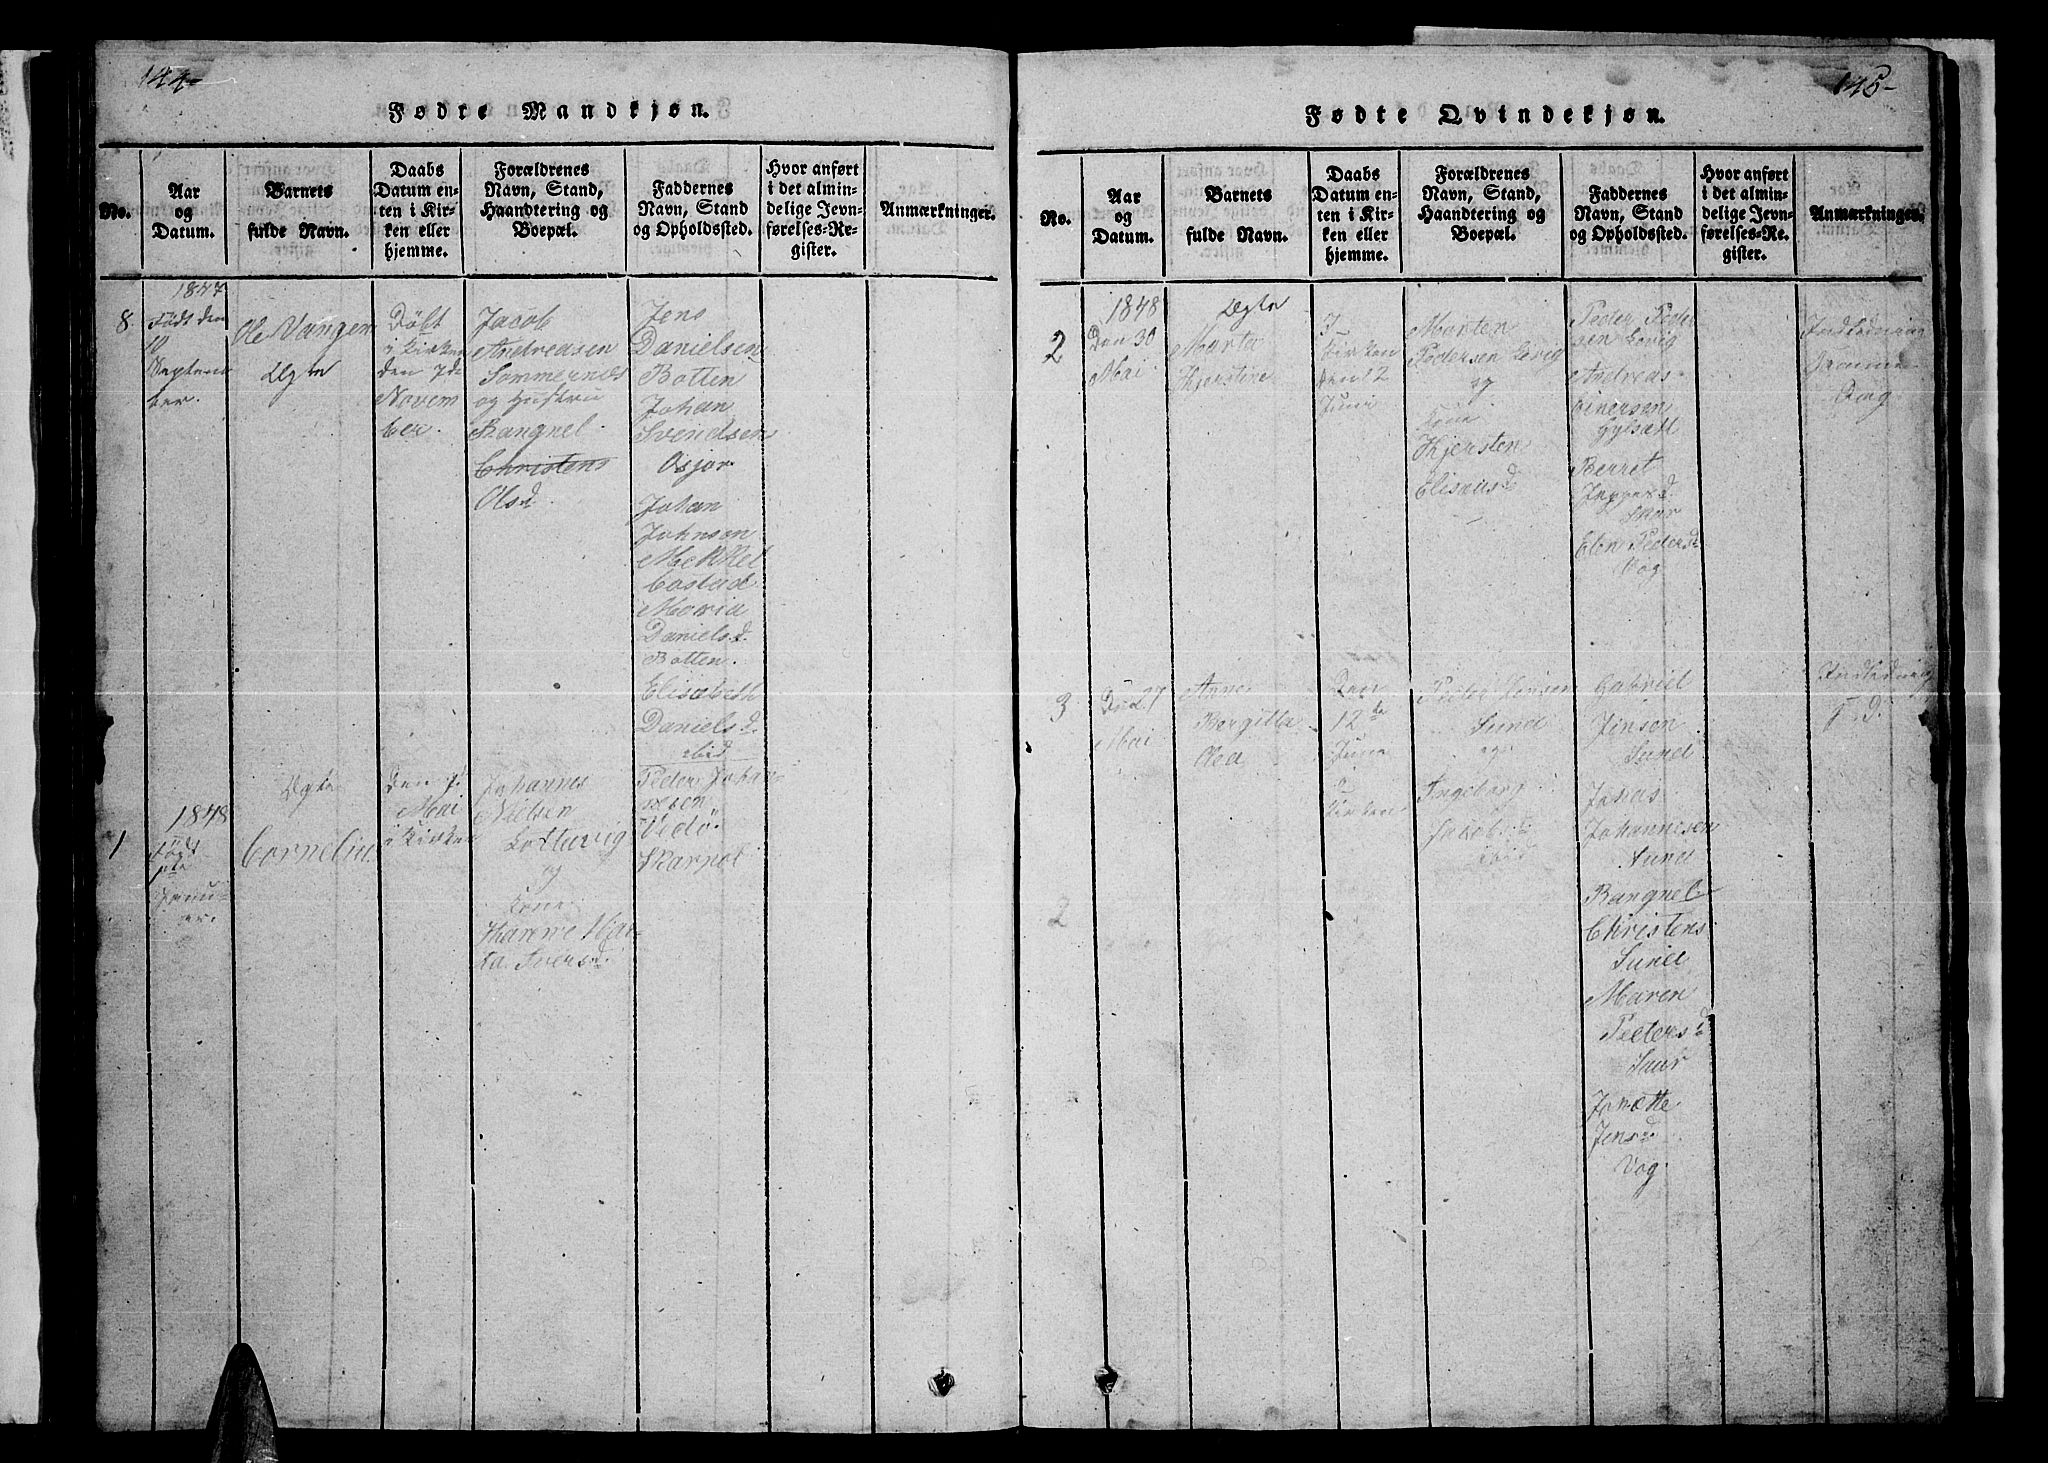 144
Fødre Mandkjøn.
No.
Aar
og
Datum.
Barnets
fulde Navn.
Daabs
Datum en-
ten i Kir-
ken eller
hjemme.
Forældrenes
Navn, Stand,
Haandtering og
Boepæl.
Faddernes
Navn, Stand
og Opholdssted.
Hvor anført
i det almin-
delige Jevn-
førelses-Re-
gister.
Anmærkninger.
8.
1847
Født den
10
Septem
ber.
Ole Vangen
Ægte
Döbt
i Kirken
den 7de
Novem
ber.
Jacob
Andreasen
Sommernæs
og Hustru
Rangnel
Christens
Olsd
Jens
Danielsen
Botten
Johan
Svendsen
Osjor
Johan
Johnson
Mekkel
Maria
Danielsd.
Botten.
Elisabeth
Danielsd.
ibid
1
1848
Født
1ste
Janu-
ar.
Ægte
Cornelius
Den 7.
Mai
i Kirken
Johannes
Nielsen
og
Kone
Hanne Mar-
ta Iversd.
Peder Johan
sen
Vedö
145
Fødte Qvindekjøn.
No.
Aar
og
Datum.
Barnets
fulde Navn.
Daabs
Datum en-
ten i Kir-
ken eller
hjemme.
Forældrenes
Navn, Stand,
Haandtering og
Boepæl.
Faddernes
Navn, Stand
og Opholdssted.
Hvor anført
i det almin-
delige Jevn-
førelses-Re-
gister.
Anmærkninger.
2
1848
Den 30
Mai
Ægte
Marta
Kjerstine
I
Kirken
den 12
Juni
Morten
Pedersen Levig
og
Kone
Kjersten
Elisæusd
Peder Peder
sen Levig
Andreas
Einersen
Berret
Jeppesd.
Skar
Elen Pedersd
Vog
Indledning
samme
Dag
3
Den 27
Mai
Anne
Bergitta
Olea
Den
12te
Juni
i
Kirken
Peder Hansen
Sund
og
Ingeborg
Jakobsd
ibid
Gabriel
Jensen
Sund
Jonas
Johannesen
Sund
Rangnel
Christens
Sund
Maren
Pedersd
Saur
Jonætte
Jensd.
Vog
Indledning
2